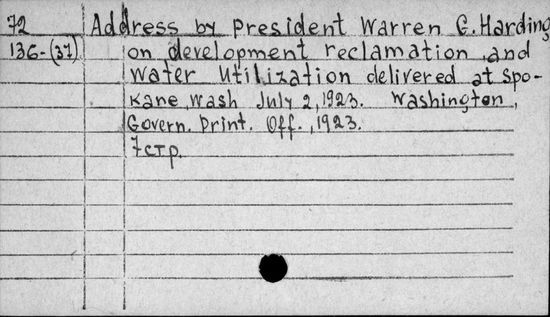 72 Address by president Warren G. Harding
136-(37) on development reclamation and
Water Utilization delivered at Spo-
kane, Wash July 2, 1923. Washington,
Govern. Print. Off., 1923.
7 стр.